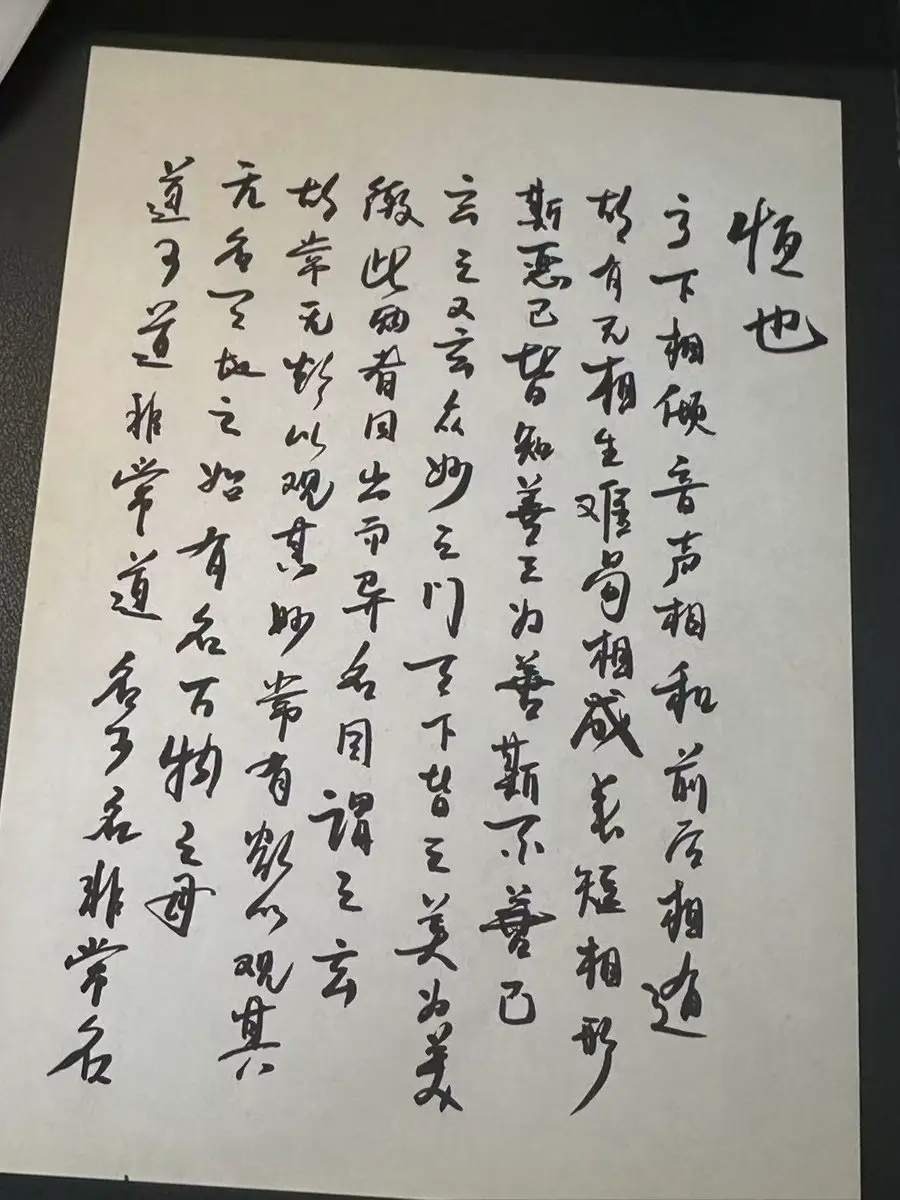 道可道非常道名可名非常名
无名天地之始有名万物之母
故常无欲以观其妙常有欲以观其
徼此两者同出而异名同謂之玄
玄之又玄众妙之门天下皆之美为美
斯恶已皆知善之为善斯不善已
故有无相生难易相成长短相形
高下相倾音声相和前后相随
恒也